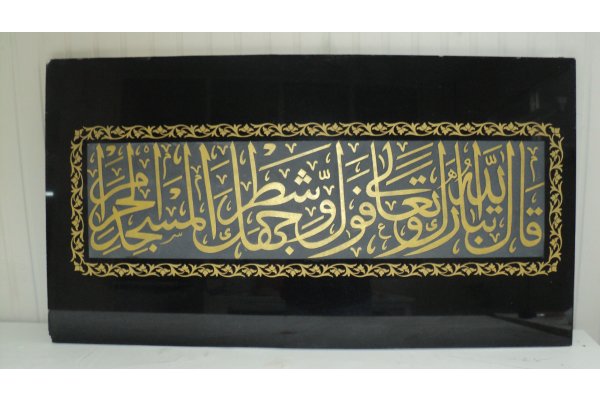 قال الله تبارك وتعالى فول وجهك شطر المسجد الحرام